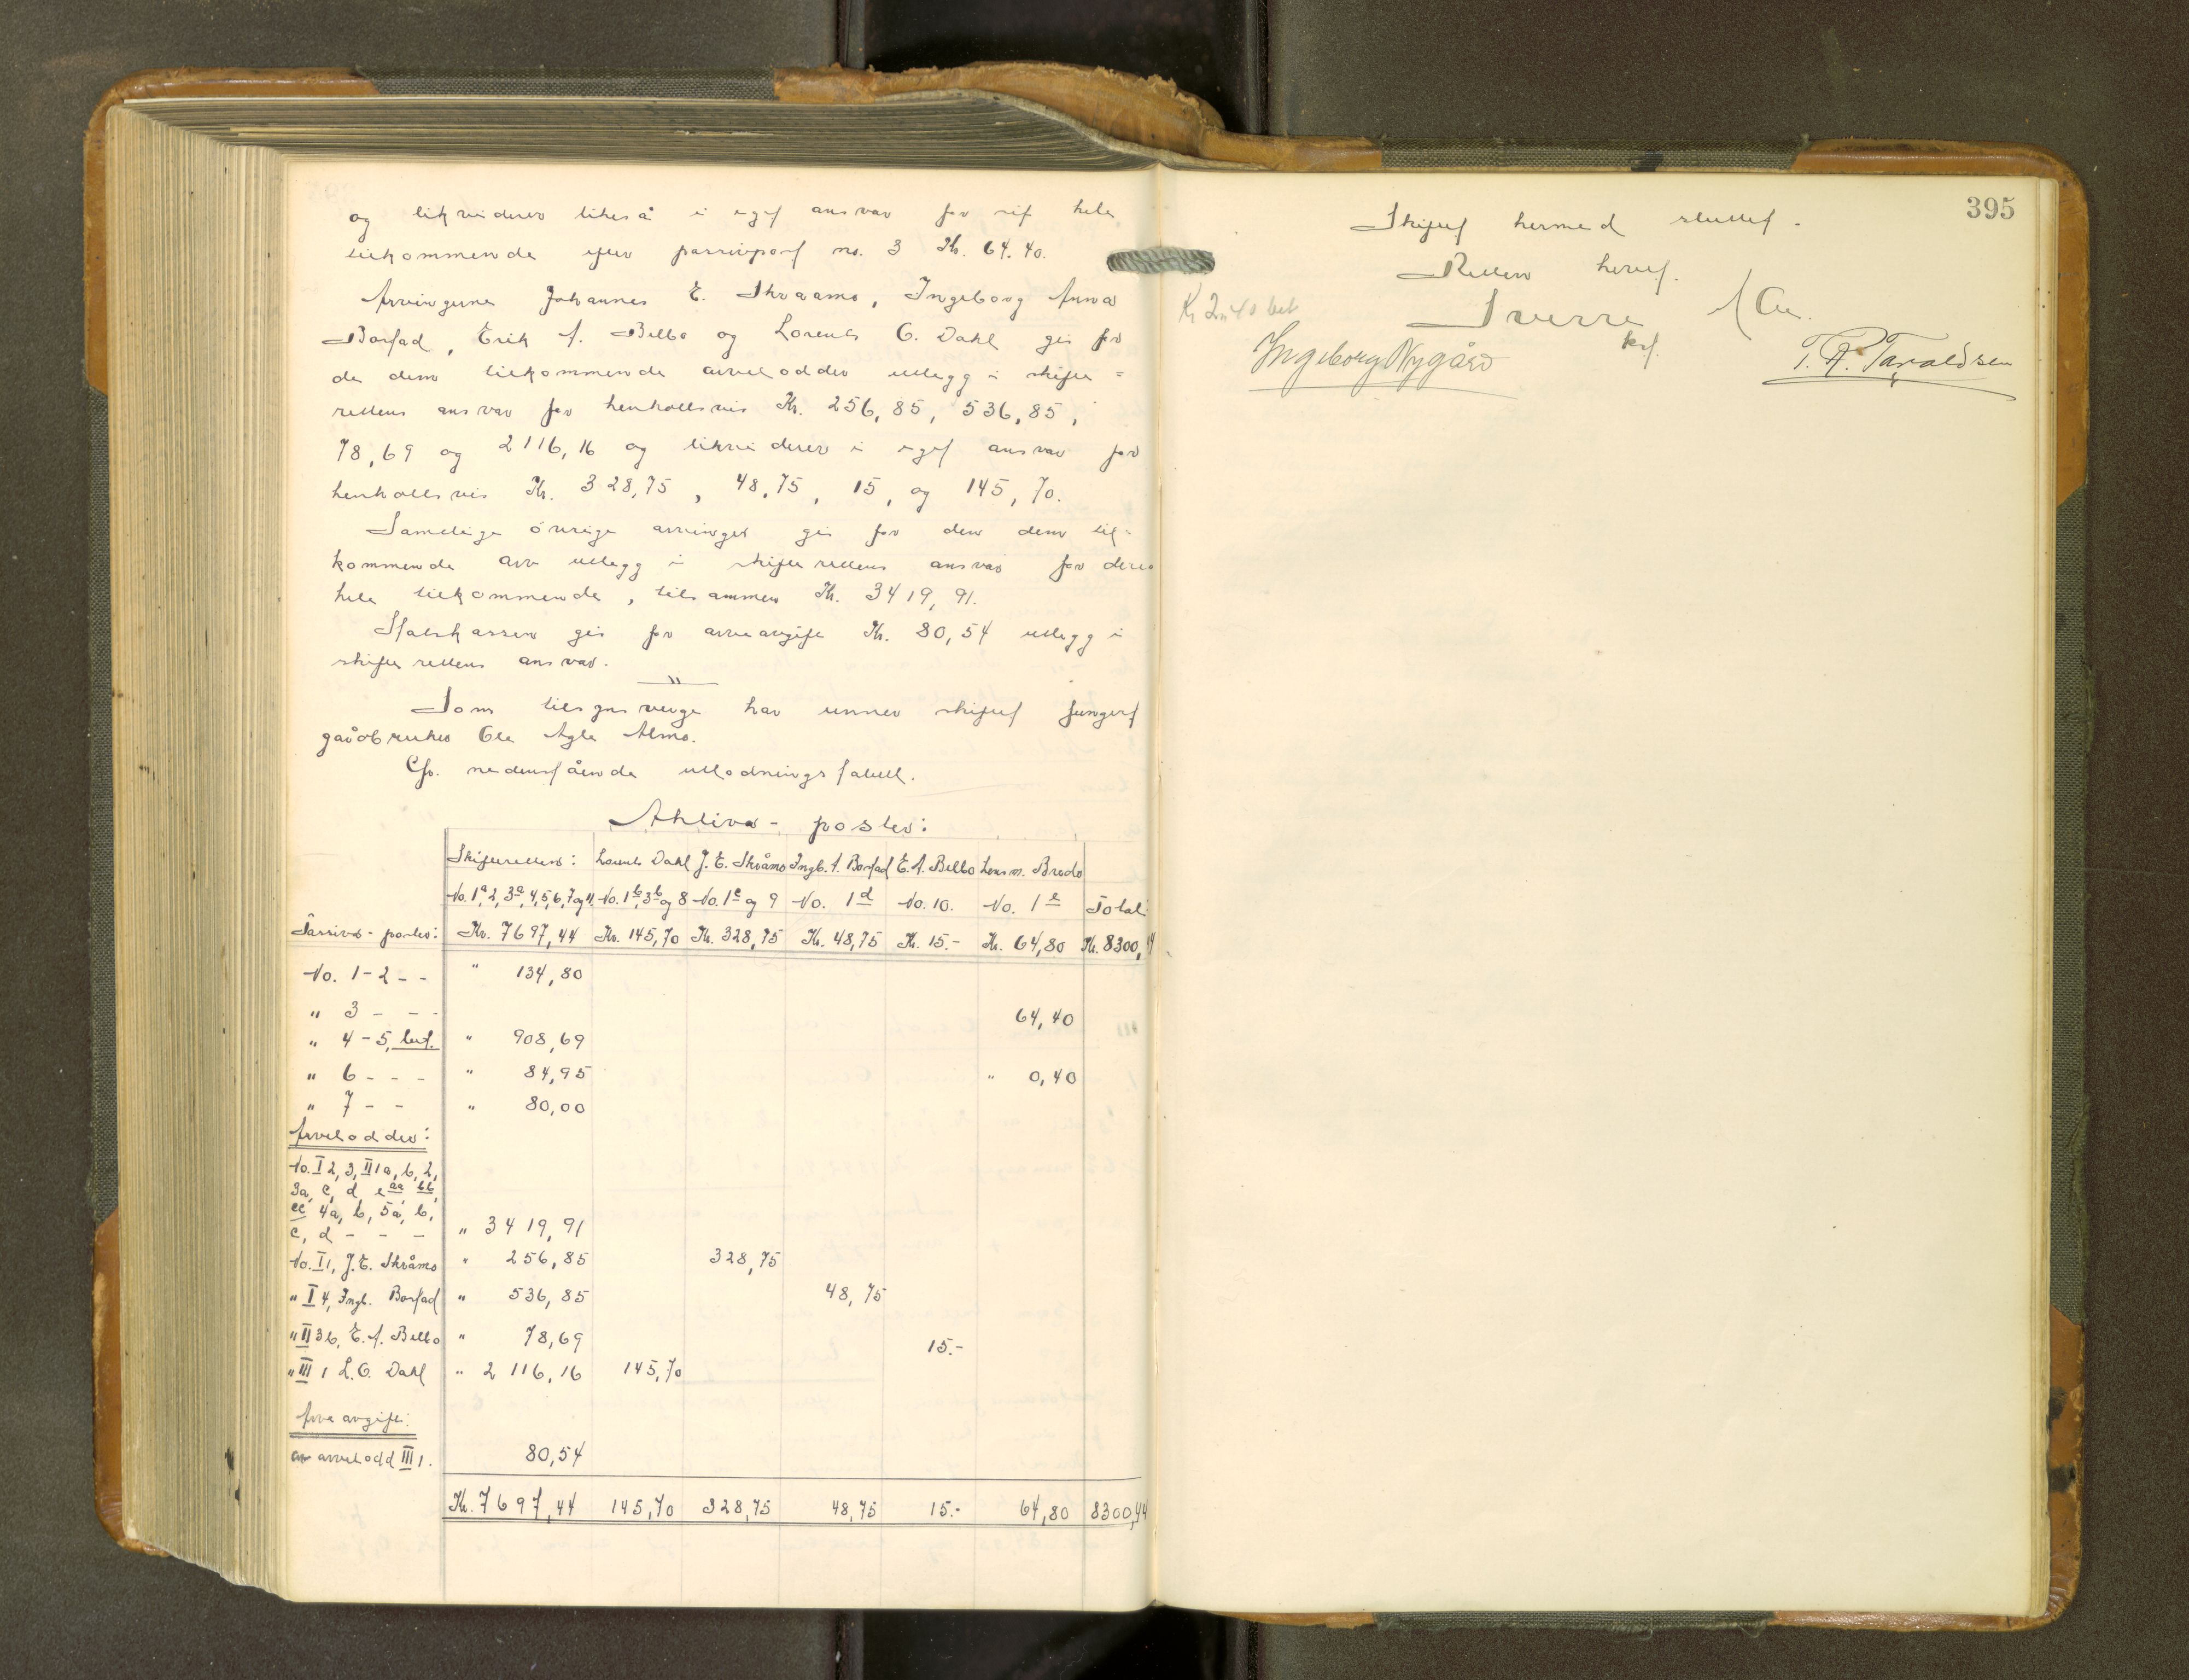 og likviderer likeså i eget ansvar for sit hele
tilkommende efter passivpost no. 3 Kr. 64.40.
Arvingerne Johannes E. Skraamo, Ingeborg Anna
Borstad, Erik A. Belbo og Lorents O. Dahl gis for
de dem tilkommende arvelodder utlegg i skifte=
rettens ansvar for henholdsvis Kr. 256,85, 536,85,
78,69 og 2116,16 og likviderer i eget ansvar for
henholdsvis Kr. 328,75, 48,75, 15, og 145,70.
Samtlige övrige arvinger gis for den dem til=
kommende arv utlegg i skifterettens ansvar for deres
hele tilkommende, tilsammen Kr. 3419,91.
Statskassen gis for arveavgift Kr. 80,54 utlegg i
skifterettens ansvar.
"
Som tilsynsverge har under skiftet fungert
gaardbruker Ole Agle Almo.
Cfr. nedenstående utlodningstabell.
Aktiva - poster:
Skifteretten: Lorents Dahl J. E. Skråmo Ingb. A. Borstad E. A. Belbo Lensm. Brede
No. 1a, 2, 3a, 4, 5, 6, 7 og 11. No. 1b, 3b og 8 No. 1c og 9 No. 1d No. 10. No. 1e Total:
Passiva - poster: Kr. 7697,44 Kr. 145,70 Kr. 328,75 Kr. 48,75 Kr. 15.- Kr. 64,80 Kr. 8300,44
No. 1-2 - - " 134,80
" 3 - - - 64,40
" 4-5, " 908,69
" 6 - - - " 84,95 " 0,40
" 7 - - " 80,00
Arvelodder:
No. I 2, 3, II 1a, b, 2,
3a, c, d, e aa, bb,
cc 4a, b, 5a, b,
c, d - - - " 3419,91
No. I 1, J. E. Skråmo " 256,85 328,75
" I 4, Ingb. Borstad " 536,85 48,75
" II 3b, E. A. Belbo " 78,69 15.-
" III 1 L. O. Dahl " 2116,16 145,70
Arveavgift:
av arvelodd III 1. 80,54
Kr. 7697,44 145,70 328,75 48,75 15.- 64,80 8300,44
395
Skiftet hermed sluttet.
Retten hevet.
Kr 2.40 bet
Sverre
kst.
Ingeborg Nygård
T. R. Taraldsen